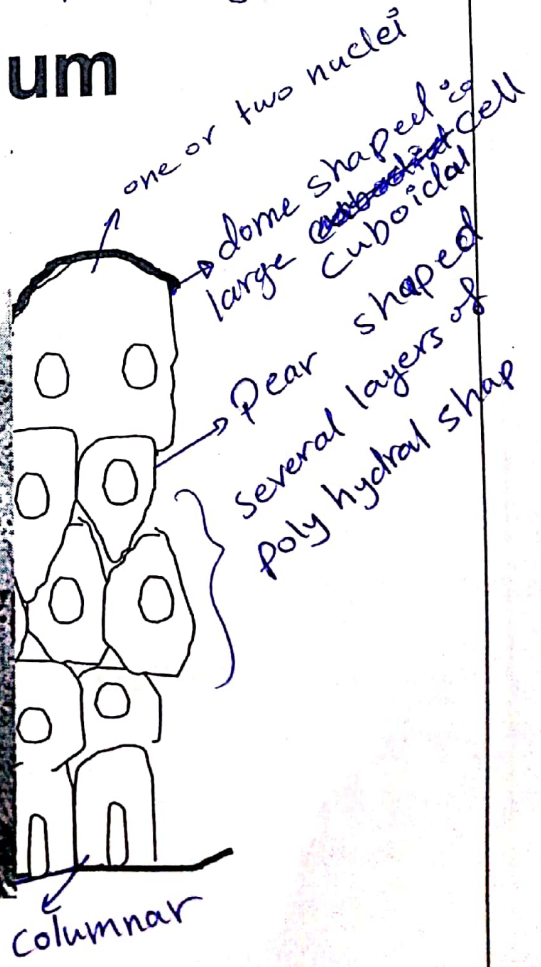 um
one or two nuclei
dome shaped
large cell
cuboidal
Pear shaped
several layers of
poly hydral shap
columnar